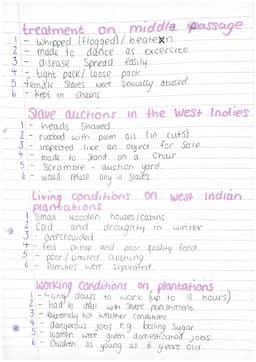 treatment on middle passage
1 - whipped (flogged) / beaten
2 - made to dance as excersise
3 - disease spread easily
4 - tight pack/loose pack
5 female slaves were sexually abused.
6 - kept in chains
Slave auctions in the West Indies
1 - heads shaved
2 - rubbed with palm oil (in cuts)
3 - inspected like an object for sale
4 - made to stand on a chair
5 - Scramble - auction yard
6 - would refuse any ill slaves
Living conditions on west indian
plantations
1 Small wooden houses/cabins
2 Cold and draughty in winter
3 - overcrowded
4 - fed cheap and poor quality food.
5 - poor/limited clothing
6 - families were separated.
Working conditions on plantations
1 - long days to work (up to 18 hours)
2 - had to deal with severe punishment
3 - extremely hot weather conditions
4 - dangerous jobs e.g. boiling sugar
5 - women were given domesticated jobs.
6 - Children as young as 6 years old